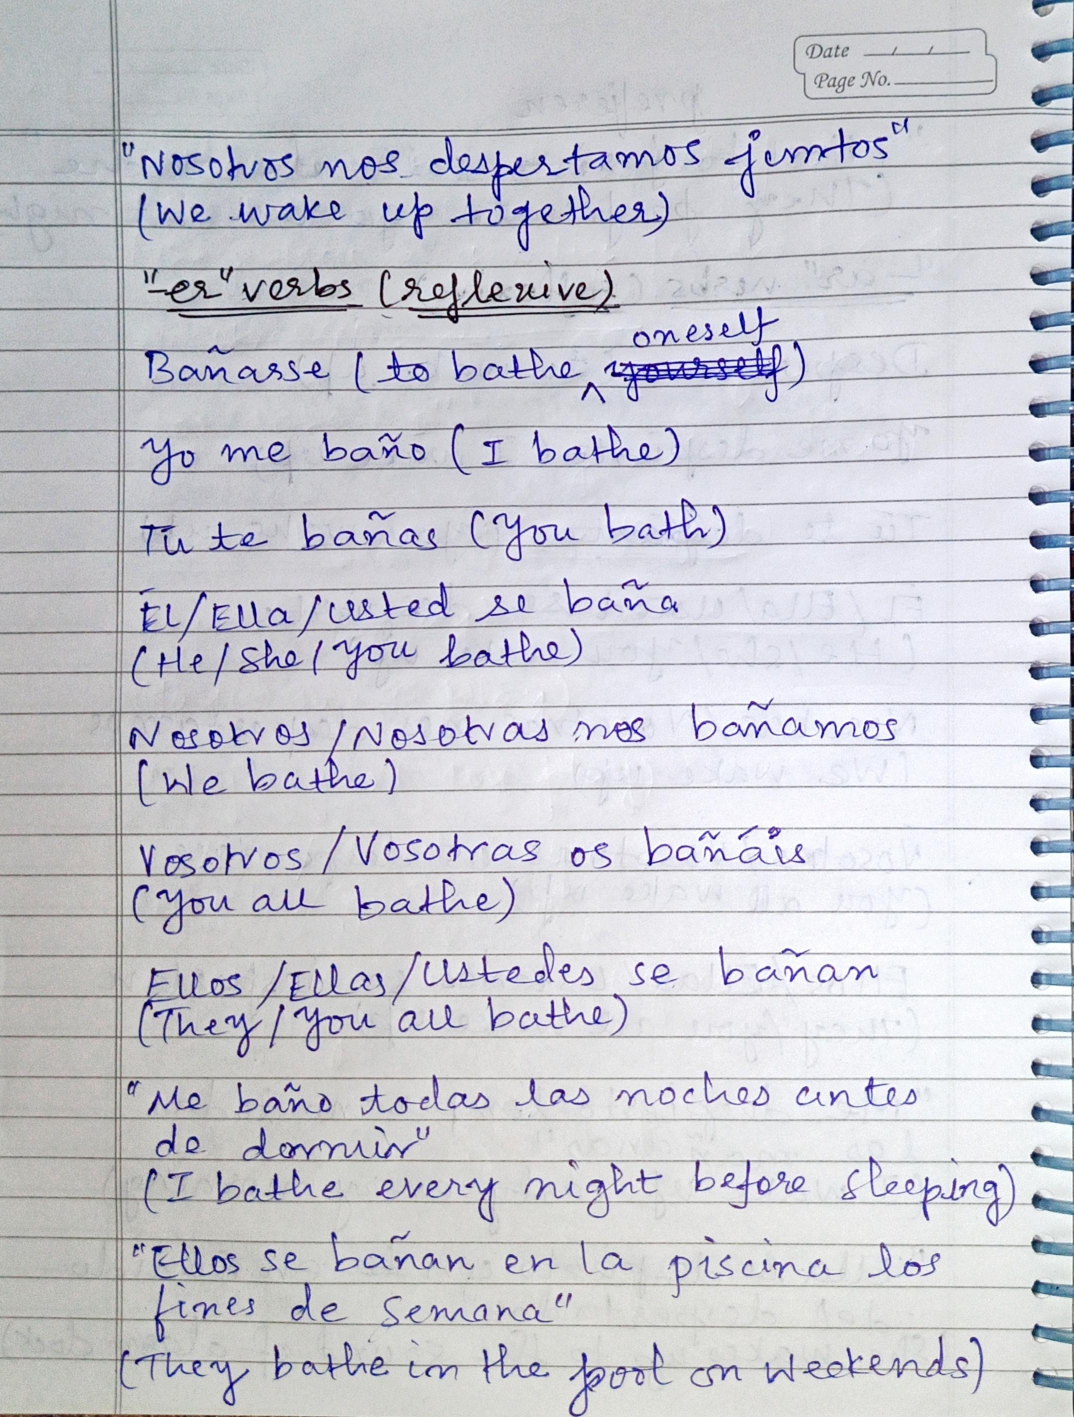 Date __/__/__
Page No. ______
"Nosotros nos despertamos juntos"
(We wake up together)
"-er" verbs (reflexive)
oneself
Bañasse (to bathe ^ yourself)
Yo me baño (I bathe)
Tú te bañas (You bath)
Él/Ella/Usted se baña
(He/She/You bathe)
Nosotros/Nosotras nos bañamos
(We bathe)
Vosotros/Vosotras os bañáis
(You all bathe)
Ellos/Ellas/Ustedes se bañan
(They/You all bathe)
"Me baño todas las noches antes
de dormir"
(I bathe every night before sleeping)
"Ellos se bañan en la piscina los
fines de semana"
(They bathe in the pool on weekends)